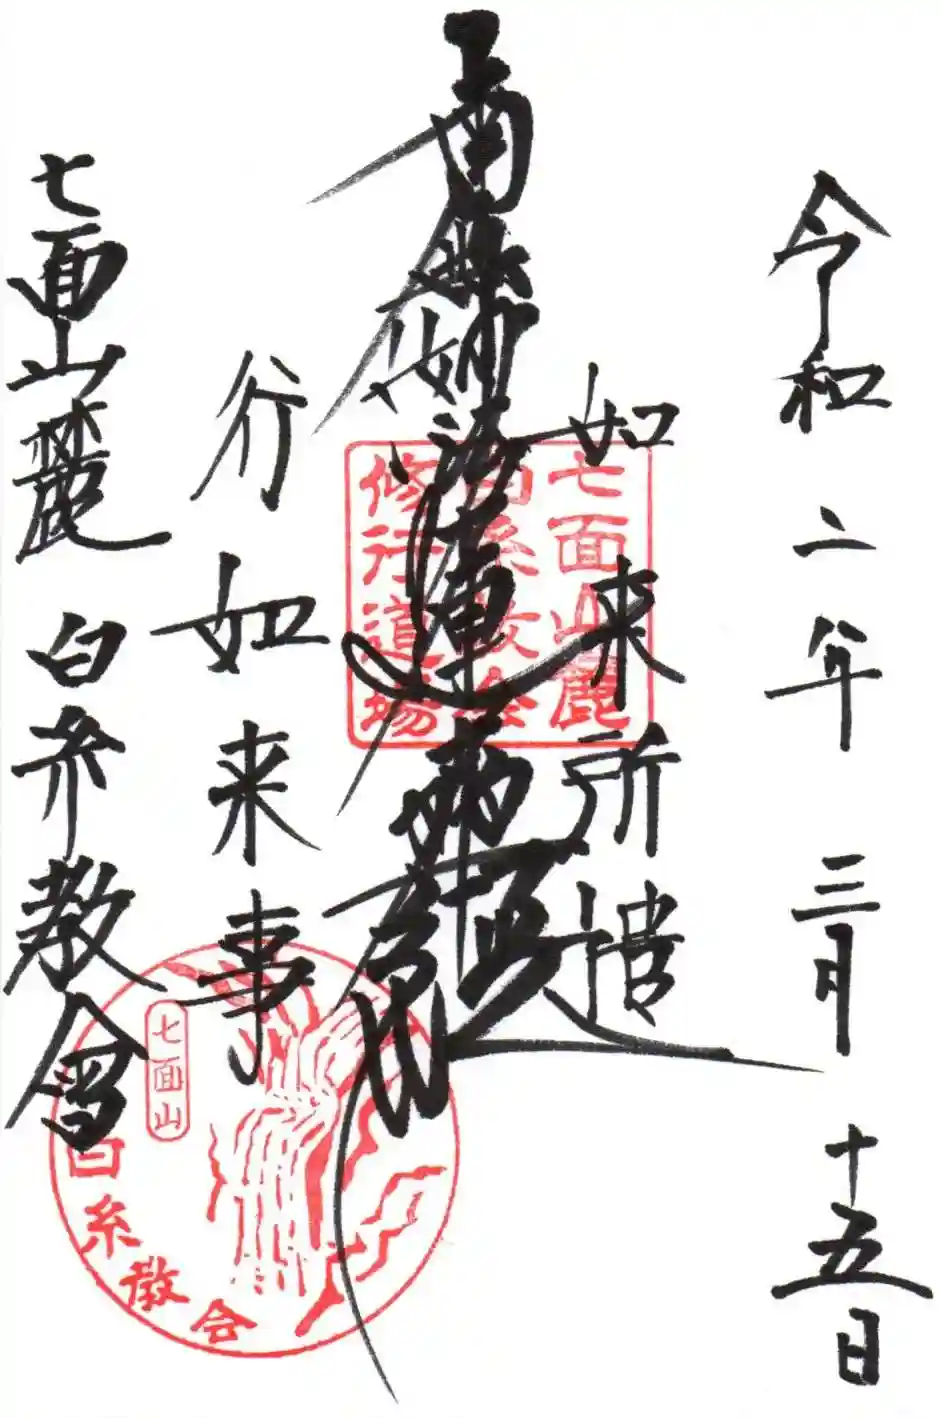 令和二年三月十五日
如来所遣
南無妙法蓮華經
行如来事
七面山麓 白糸教會
七面山麓
白糸教会
修行道場
七面山
白糸教会